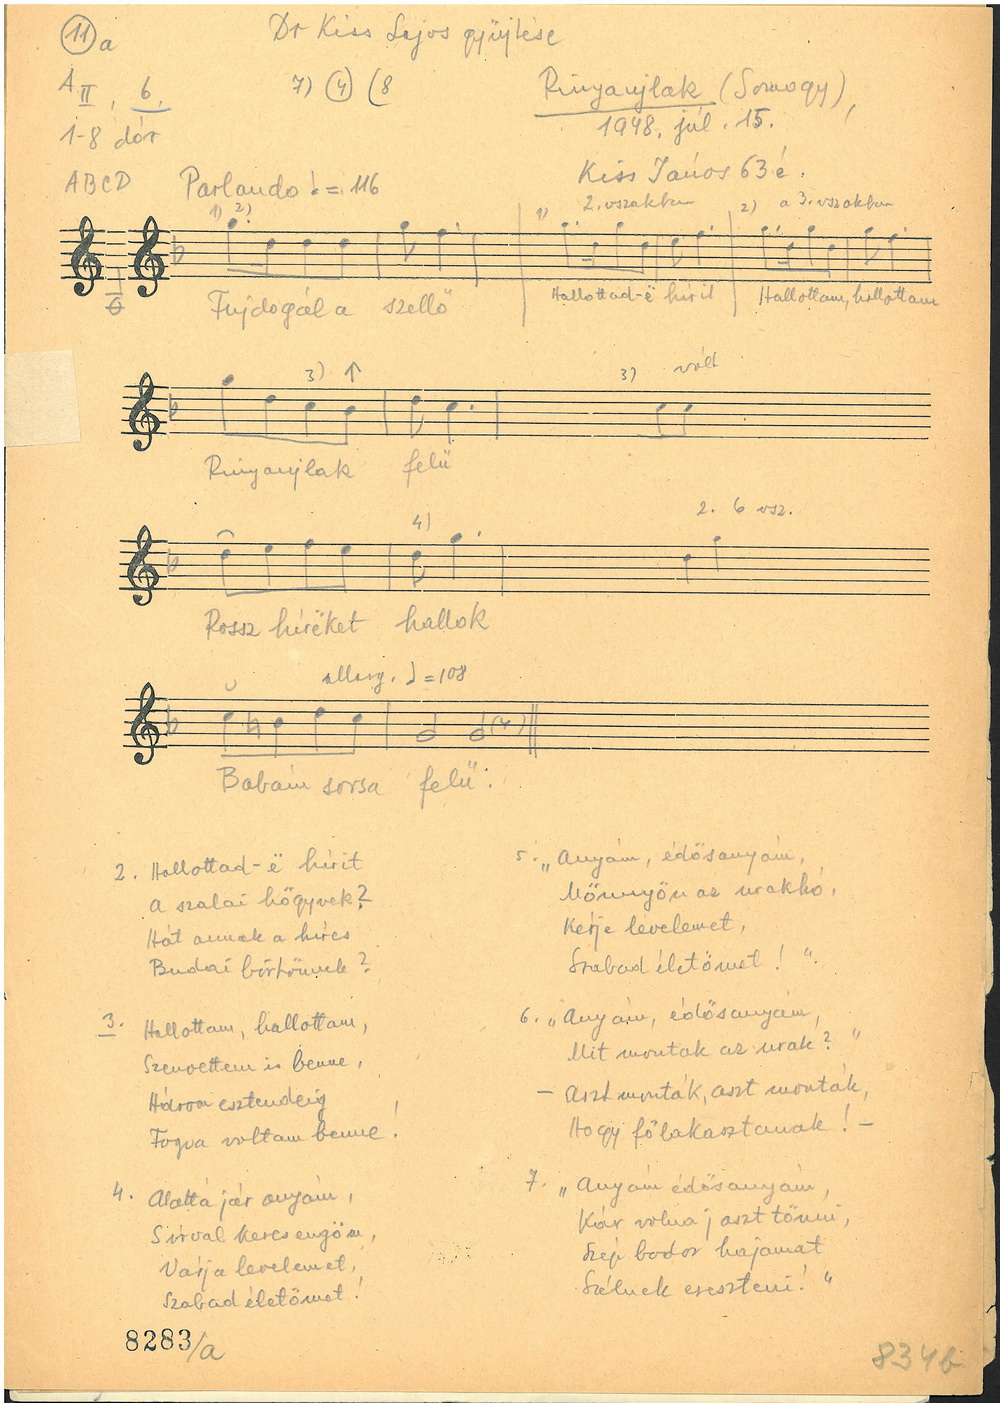 11 a
Dr Kiss Lajos gyűjtése
A II, 6.
7) 4 (8
Rinyaujlak (Somogy),
1-8 dór
1948, júl. 15.
ABCD
Parlando ♩ = 116
Kiss János 63 é.
1) 2)
1) 2. vszakban
2) a 3. vszakban
Fujdogál a szellő
Hallottad-ë hírit
Hallottam, hallottam
3) ↑
3) vót
Rinyaujlak felű
4)
2. 6 vsz.
Rossz híröket hallok
allarg. ♩ = 108
Babám sorsa felű.
2. Hallottad-ë hírit
A szalai hőgyvek?
Hát annak a híres
Budai börtönnek?
3. Hallottam, hallottam,
Szenvettem is benne,
Három esztendeig
Fogva voltam benne!
4. Alattá jár anyám,
Sirval keres engöm,
Várja levelemet,
Szabad életömet!
5. „Anyám, édösanyám,
Mönnyön az urakhó,
Kérje levelemet,
Szabad életömet!"
6. „Anyám, édösanyám,
Mit montak az urak?"
— Aszt monták, aszt monták,
Hogy fölakasztanak! —
7. „Anyám édösanyám,
Kár volna j aszt tönni,
Szép bodor hajamat
Szélnek ereszteni!"
8283/a
834b